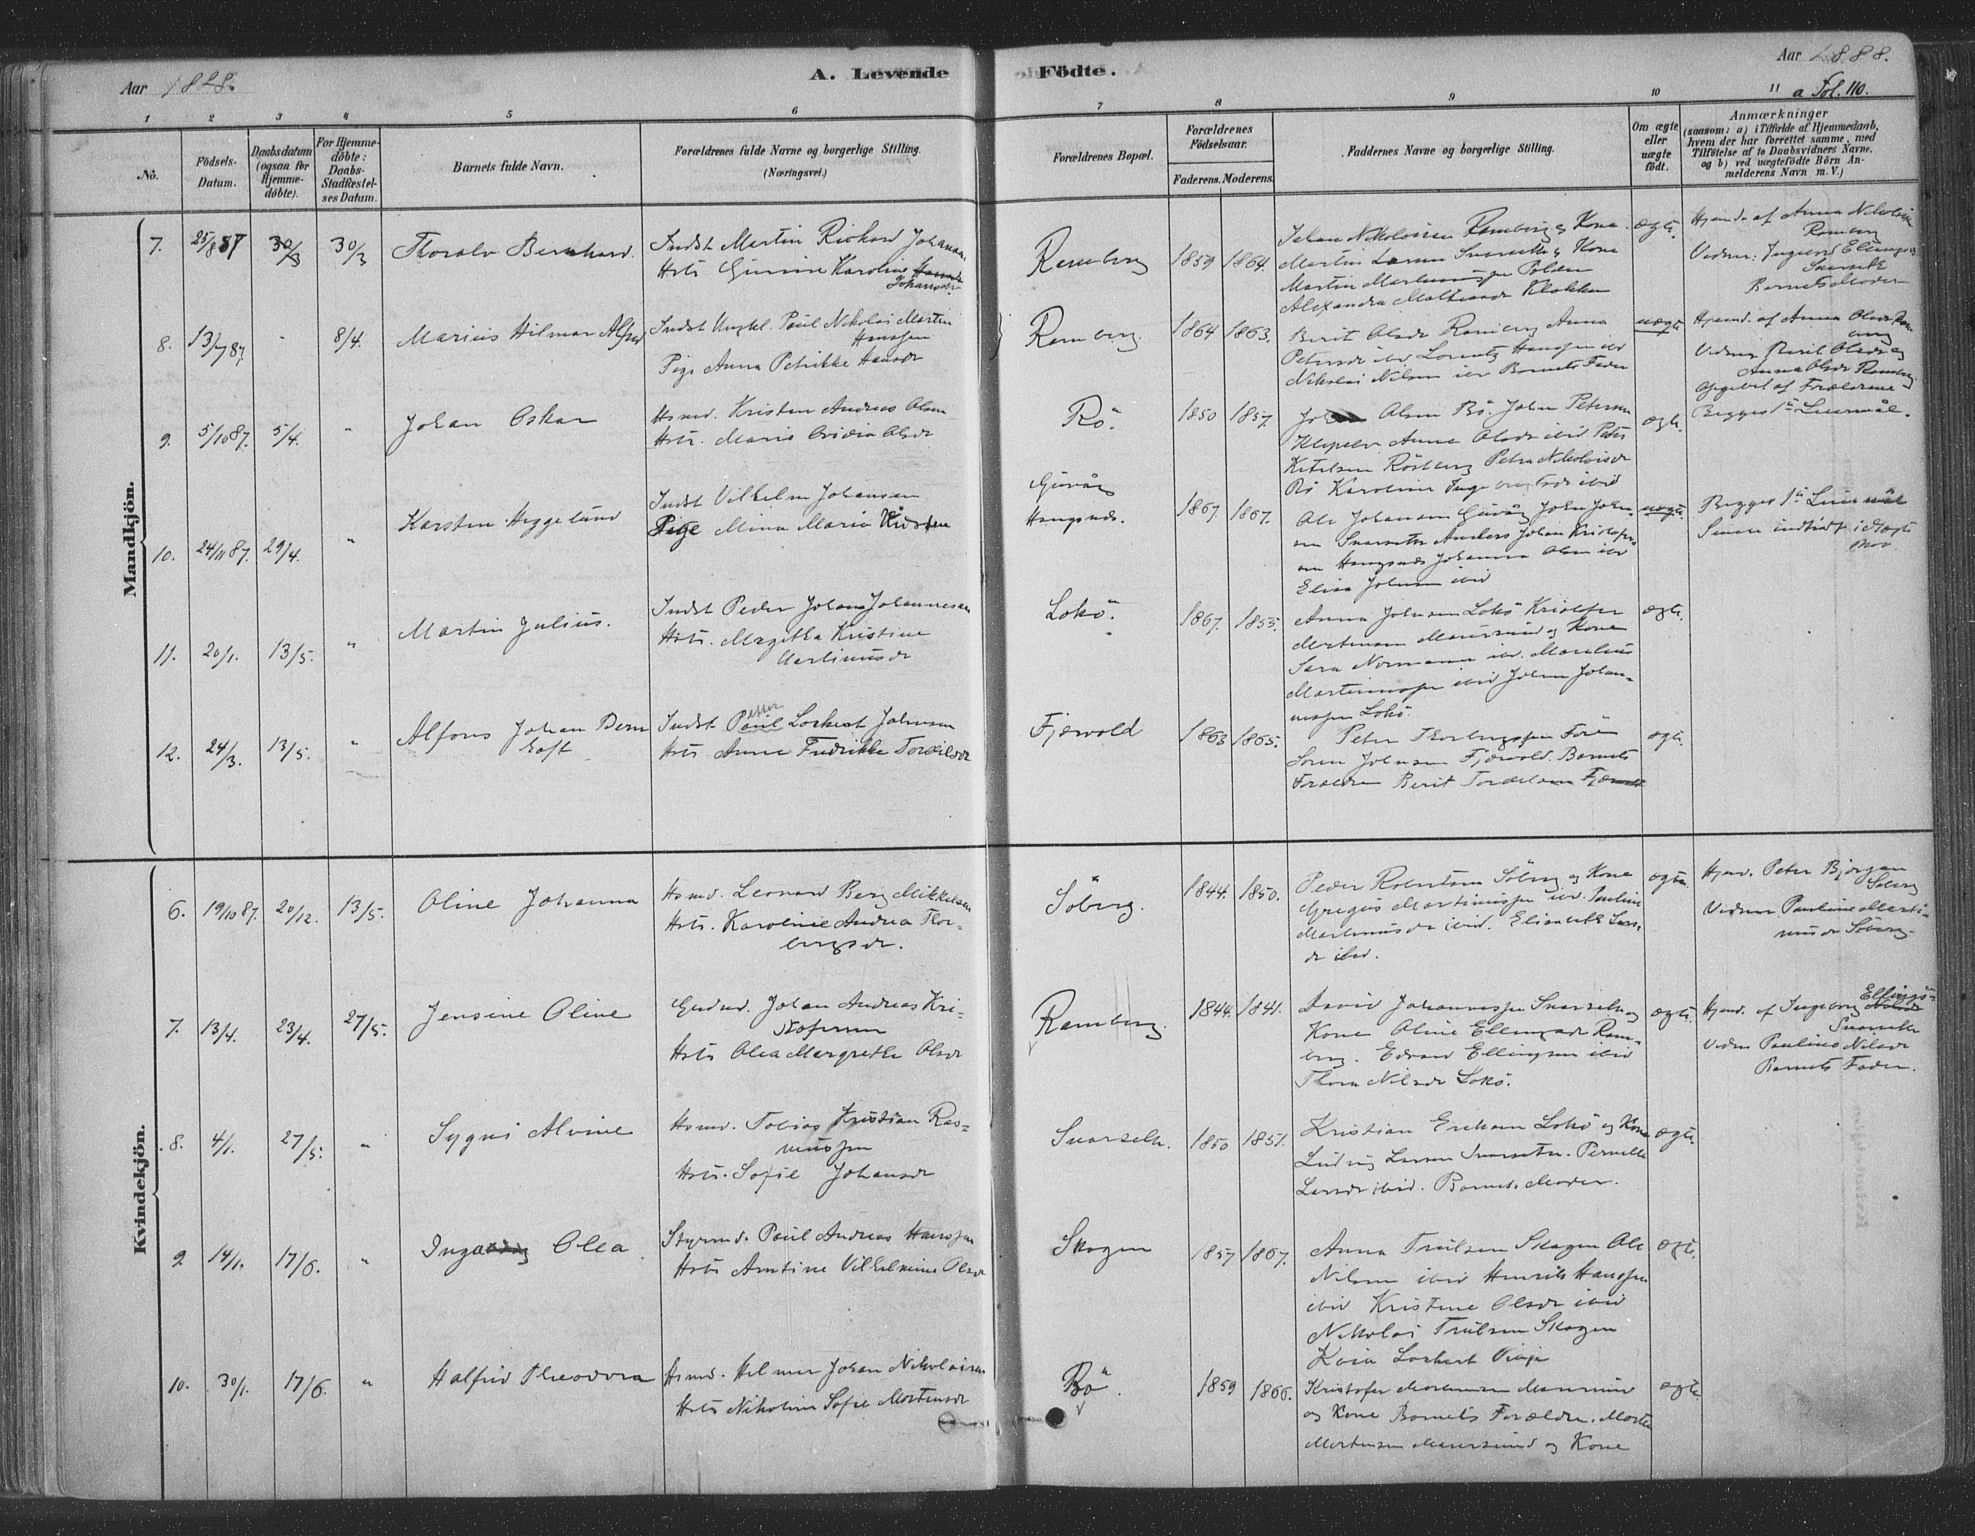 Aar 1888.
A. Levende Födte.
Aar 1888.
a Fol. 110.
1 2 3 4 5 6 7 8 9 10 11
No.
Födsels-Datum.
Daabsdatum (ogsaa for Hjemme-döbte).
For Hjemme-döbte: Daabs-Stadfæstel-ses Datum.
Barnets fulde Navn.
Forældrenes fulde Navne og borgerlige Stilling.
(Næringsvei.)
Forældrenes Bopæl.
Forældrenes Födselsaar.
Faderens. Moderens.
Faddernes Navne og borgerlige Stilling.
Om ægte eller uægte födt.
Anmærkninger
(saasom: a) i Tilfælde af Hjemmedaab,
hvem der har forrettet samme, med
Tilföielse af to Daabsvidners Navne,
og b) ved uægtefödte Börn An-
melderens Navn m. V.)
Mandkjön.
7. 25/8 87 30/3 30/3 Thoralv Bernhard.
Indst Martin Rickard Johansen
Hstr Gurine Karoline
Johansdr
Ramberg 1859 1864.
Johan Nikolaisen Ramberg & Kone
Martin Larsen Snarseth & Kone
Martin Martinussen Polden
Alexandra Klokken
ægte.
Hjemd. af Anna Nikolaisn
Ramberg
Vidner: Ingebor Ellingsdr
Snarseth
Barnets Moder
8. 13/7 87. " 8/4. Marius Hilmar Alfred
Indst Ungkl. Paul Nikolai Martin
Hanssen
Pige Anna Petrikke Hansdr
Ramberg 1864 1863.
Berit Olsdr Ramberg Anna
Petersdr ibid Lorentz Hanssen ibid
Nikolai Nilsen ibid Barnets Fader
uægte
Hjemd. af Anna Olsdr Ram
berg
Vidner Berit Olsdr og
Anna Olsdr Ramberg
Opgivet af Forældrene
Begges 1ste Leiermål.
9. 5/10 87. 5/4. " Johan Oskar
Hsmd. Kristen Andreas Olsen
Hstr. Maria Olsdr
Bö 1850 1857.
Olsen Bö. John Petersen
Anna Olsdr ibid Peter
Ketelsen Rösberg Petra Nikolaisdr
Bö Karoline Ingebrigtsdr ibid
ægte.
10. 24/11 87. 29/4. " Karsten Heggelund
Indst Vilhelm Johansen
Pige Mina Maria
Guvåg
Hongsnes. 1867 1867.
Ole Johansen Guvåg John John-
sen Snarseth Anders Johan Kristofer-
sen Hongsnes Johanna Olsen ibid
Elisa Johnsen ibid
uægte.
Begges 1ste Leiermål
11. 20/1. 13/5. " Martin Julius.
Indst Peder Johan Johannesen
Hstr. Margitha Kristine
Martinusdr
Lokö. 1867. 1855.
Anna Johnsen Lokö Kristofer
Mortensen Maursund & Kone
Sara Normann ibid. Marelius
Martinussen ibid John Johan-
nessen Lokö.
ægte.
12. 24/3. 13/5. " Alfons Johan Bern
toft
Indst Paul Lockert Johnsen
Hstr. Anne Fredrikke Toralsdr
Fjærvold 1863 1865.
Peter Thorbergssen Före
Sören Johnsen Fjærvold. Barnets
Forældre Berit
ægte.
Kvindekjön.
6. 19/10 87. 20/12. 13/5. Oline Johanna
Hsmd. Leonard Berg Mikkelsen
Hstr. Karoline Andrea Thor-
bergsdr.
Söberg. 1844. 1850.
Peder Robertsen Söberg og Kone
Gregus Martinussen ibid. Pauline
Martinusdr ibid. Elisabeth Lars-
dr ibid.
ægte.
Hjemd. Peter Björgan
Söberg
Vidner Pauline Marti-
nusdr Söberg.
7. 13/4. 23/4. 27/5. Jensine Oline
Gaardmd. Johan Andreas Kri-
stofersen
Hstr Olea Margrethe Olsdr
Ramberg. 1844. 1841.
David Johannessen Snarseth og
Kone Oline Ellingsdr Ram-
berg. Edvard Ellingsen ibid
Thora Nilsdr Lokö.
ægte.
Hjemd. af Ingeborg Ellings-
Snarseth
Vidner Pauline Nilsdr
Barnets Fader.
8. 4/1. 27/5. " Sygni Alvine
Hsmd. Tobias Kristian Ras-
mussen
Hstr. Sofie Johansdr
Snarseth. 1850 1851.
Kristian Eriksen Lokö og Kone
Ludvig Larsen Snarseth. Pernille
Larsdr ibid. Barnets Moder.
ægte.
9. 14/1. 17/6. " Inga Olea
Styrmd. Paul Andreas Hanssen
Hstr Antine Vilhelmine Olsdr
Skagen 1857 1867.
Anna Trulsen Skagen Ole
Nilsen ibid Henrik Hanssen
ibid Kristine Olsdr ibid
Nikolai Trulsen Skagen
ægte.
10. 30/1. 17/6. " Halfrid Theodora
Hsmd. Hilmer Johan Nikolaisen
Hstr Nikoline Sofie Mortensdr
Bö. 1859 1866.
Kaia Lockert Vinje
Kristofer Mortensen Maursund
og Kone Barnets Forældre. Morten
Mortensen Maursund og Kone
ægte